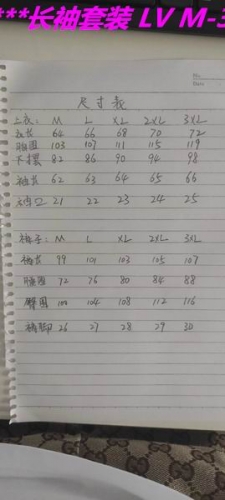 ***长袖套装 LV M-3
No:
Date:
尺寸表
上衣: M L XL 2XL 3XL
衣长 64 66 68 70 72
胸围 103 107 111 115 119
下摆 82 86 90 94 98
袖长 62 63 64 65 66
袖口 21 22 23 24 25
裤子: M L XL 2XL 3XL
裤长 99 101 103 105 107
腰围 72 76 80 84 88
臀围 100 104 108 112 116
裤脚 26 27 28 29 30